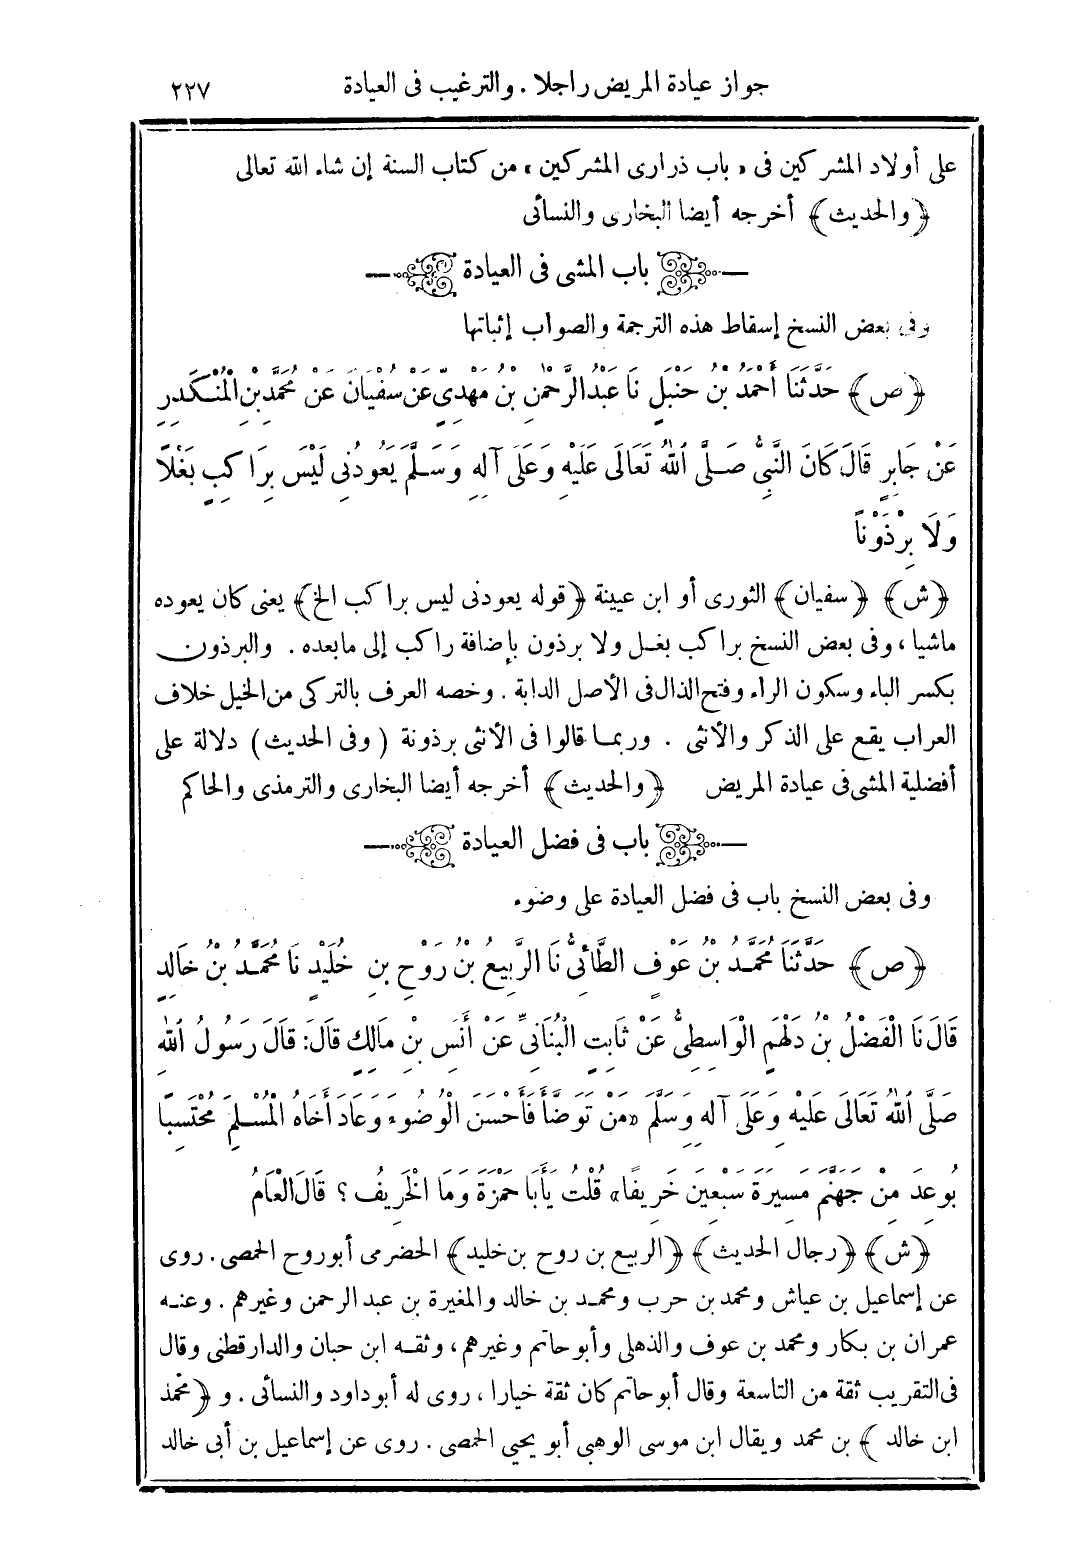 جواز عيادة المريض راجلا . والترغيب فى العيادة ٢٢٧
على أولاد المشركين فى « باب ذرارى المشركين » من كتاب السنة إن شاء الله تعالى
﴿والحديث﴾ أخرجه أيضا البخارى والنسائى
باب المشى فى العيادة
وفى بعض النسخ إسقاط هذه الترجمة والصواب إثباتها
﴿ص﴾ حَدَّثَنَا أَحْمَدُ بْنُ حَنْبَلٍ نَا عَبْدُ الرَّحْمٰنِ بْنُ مَهْدِىٍّ عَنْ سُفْيَانَ عَنْ مُحَمَّدِ بْنِ الْمُنْكَدِرِ
عَنْ جَابِرٍ قَالَ كَانَ النَّبِىُّ صَلَّى اللهُ تَعَالَى عَلَيْهِ وَعَلَى آلِهِ وَسَلَّمَ يَعُودُنِى لَيْسَ بِرَاكِبٍ بَغْلًا
وَلَا بِرْذَوْنًا
﴿ش﴾ ﴿سفيان﴾ الثورى أو ابن عيينة ﴿قوله يعودنى ليس براكب الخ﴾ يعنى كان يعوده
ماشيا ، وفى بعض النسخ براكب بغل ولا برذون بإضافة راكب إلى مابعده . والبرذون
بكسر الباء وسكون الراء وفتح الذال فى الأصل الدابة . وخصه العرف بالتركى من الخيل خلاف
العراب يقع على الذكر والأنثى . وربما قالوا فى الأنثى برذونة ( وفى الحديث ) دلالة على
أفضلية المشى فى عيادة المريض ﴿والحديث﴾ أخرجه أيضا البخارى والترمذى والحاكم
باب فى فضل العيادة
وفى بعض النسخ باب فى فضل العيادة على وضوء
﴿ص﴾ حَدَّثَنَا مُحَمَّدُ بْنُ عَوْفٍ الطَّائِىُّ نَا الرَّبِيعُ بْنُ رَوْحِ بْنِ خُلَيْدٍ نَا مُحَمَّدُ بْنُ خَالِدٍ
قَالَ نَا الْفَضْلُ بْنُ دَلْهَمٍ الْوَاسِطِىُّ عَنْ ثَابِتٍ الْبُنَانِىِّ عَنْ أَنَسِ بْنِ مَالِكٍ قَالَ: قَالَ رَسُولُ اللهِ
صَلَّى اللهُ تَعَالَى عَلَيْهِ وَعَلَى آلِهِ وَسَلَّمَ «مَنْ تَوَضَّأَ فَأَحْسَنَ الْوُضُوءَ وَعَادَ أَخَاهُ الْمُسْلِمَ مُحْتَسِبًا
بُوعِدَ مِنْ جَهَنَّمَ مَسِيرَةَ سَبْعِينَ خَرِيفًا» قُلْتُ يَأَبَا حَمْزَةَ وَمَا الْخَرِيفُ ؟ قَالَ الْعَامُ
﴿ش﴾ ﴿رجال الحديث﴾ ﴿الربيع بن روح بن خليد﴾ الحضرمى أبو روح الحمصى . روى
عن إسماعيل بن عياش ومحمد بن حرب ومحمد بن خالد والمغيرة بن عبد الرحمن وغيرهم . وعنه
عمران بن بكار ومحمد بن عوف والذهلى وأبو حاتم وغيرهم ، وثقه ابن حبان والدارقطنى وقال
فى التقريب ثقة من التاسعة وقال أبو حاتم كان ثقة خيارا ، روى له أبو داود والنسائى . و ﴿محمد
ابن خالد ﴾ بن محمد ويقال ابن موسى الوهبى أبو يحيى الحمصى . روى عن إسماعيل بن أبى خالد